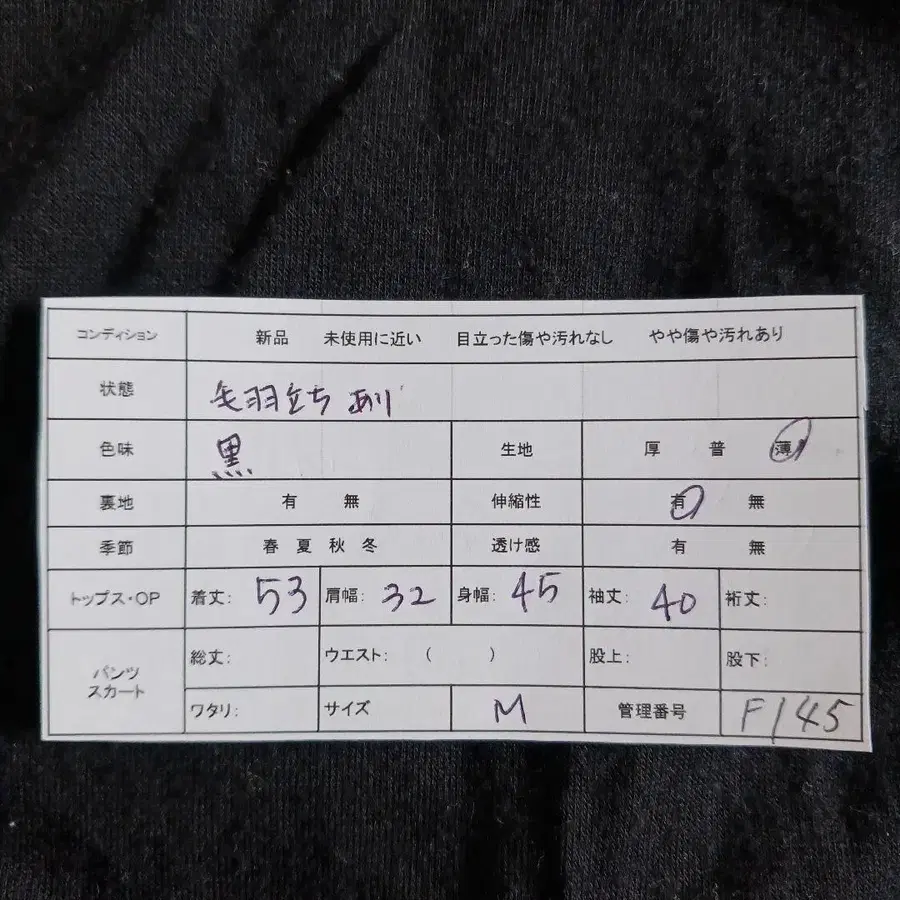 コンディション 新品 未使用に近い 目立った傷や汚れなし やや傷や汚れあり
状態 毛羽立ち あり
色味 黒 生地 厚 普 薄
裏地 有 無 伸縮性 有 無
季節 春 夏 秋 冬 透け感 有 無
トップス・OP 着丈: 53 肩幅: 32 身幅: 45 袖丈: 40 裄丈:
パンツ スカート 総丈: ウエスト: ( ) 股上: 股下:
ワタリ: サイズ M 管理番号 F145